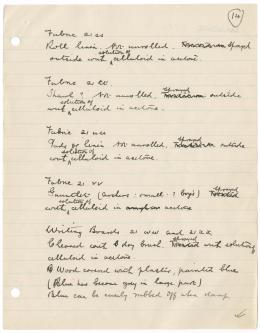 14
Fabric 21 ss
Roll linen. Not unrolled. Sprayed
outside with solution of celluloid in acetone.
Fabric 21 tt
Shawl? Not unrolled. Sprayed outside
with solution of celluloid in acetone.
Fabric 21 uu
not unrolled. Sprayed outside
with solution of celluloid in acetone.
Fabric 21 vv
Gauntlet (archers: small: ? boy's) Sprayed
with solution of celluloid in acetone
Writing Boards 21 ww and 21 xx
Cleaned with dry brush. Sprayed with solution
celluloid in acetone.
Wood covered with plaster, painted blue
(Blue has become grey in large part)
Blue can be easily rubbed off when damp